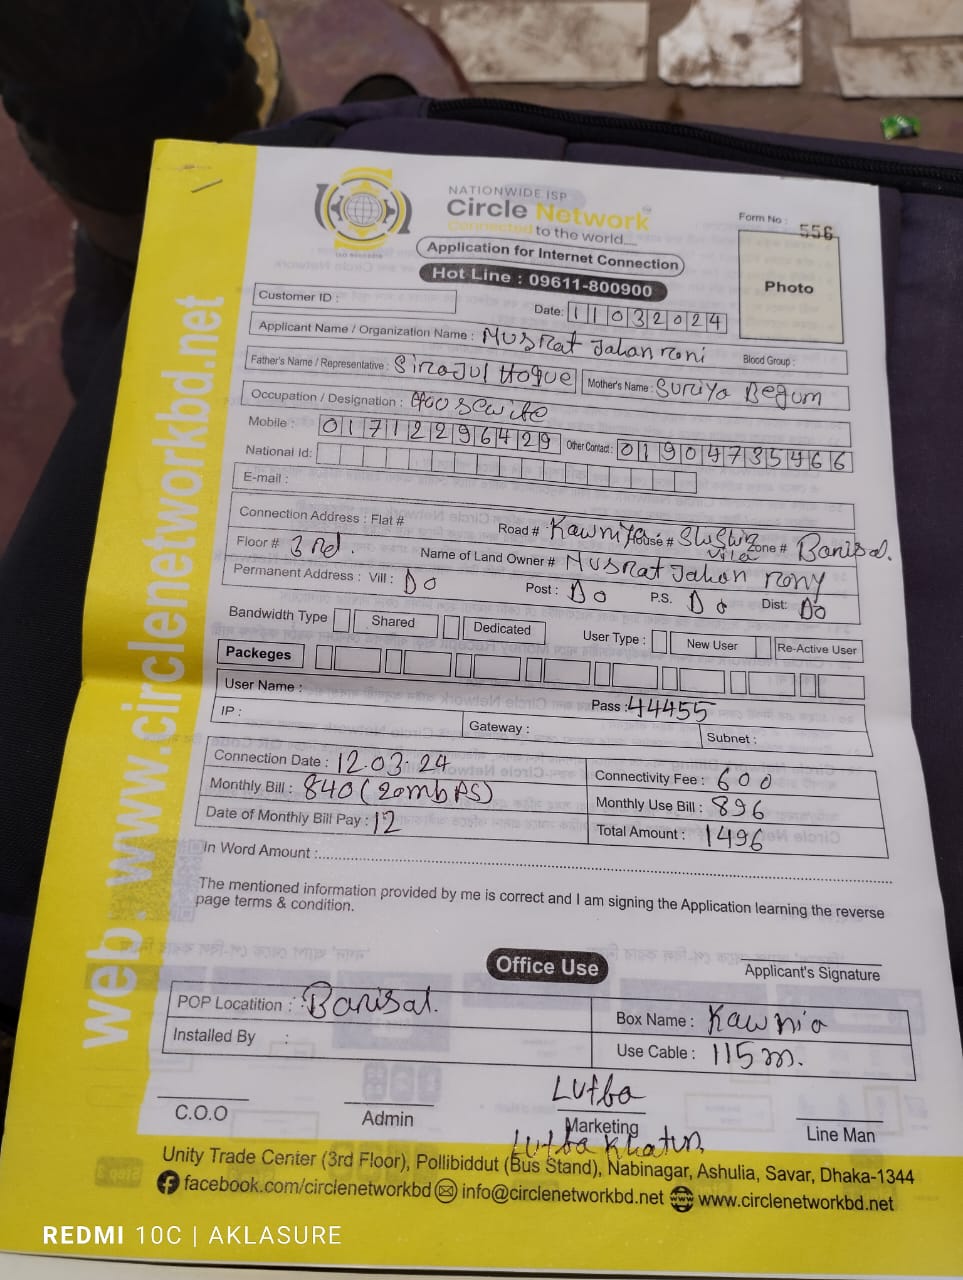 NATIONWIDE ISP
Circle Network
Connected to the world....
ISO 9001:2015
Application for Internet Connection
Hot Line : 09611-800900
Form No : 556
Photo
Customer ID :
Date: 11032024
Applicant Name / Organization Name : Nusrat Jahan roni Blood Group :
Father's Name / Representative : Sirajul Hoque Mother's Name : Suriya Begum
Occupation / Designation : Housewife
Mobile : 01712296429 Other Contact : 01904735466
National Id:
E-mail :
Connection Address : Flat # Road # Kawniya House # Vila Zone # Barisal.
Floor # 3 rd. Name of Land Owner # Nusrat Jahan rony
Permanent Address : Vill : Do Post : Do P.S. Do Dist: Do
Bandwidth Type Shared Dedicated User Type : New User Re-Active User
Packeges
User Name : Pass : 44455
IP : Gateway : Subnet :
Connection Date : 12.03.24 Connectivity Fee : 600
Monthly Bill : 840 (20mbPS) Monthly Use Bill : 896
Date of Monthly Bill Pay : 12 Total Amount : 1496
In Word Amount :
The mentioned information provided by me is correct and I am signing the Application learning the reverse
page terms & condition.
Applicant's Signature
Office Use
POP Locatition : Barisal. Box Name : Kawnia
Installed By : Use Cable : 115 m.
Lutba
C.O.O Admin Marketing Line Man
Lutba Khatun
Unity Trade Center (3rd Floor), Pollibiddut (Bus Stand), Nabinagar, Ashulia, Savar, Dhaka-1344
facebook.com/circlenetworkbd info@circlenetworkbd.net www.circlenetworkbd.net
web. www.circlenetworkbd.net
REDMI 10C | AKLASURE